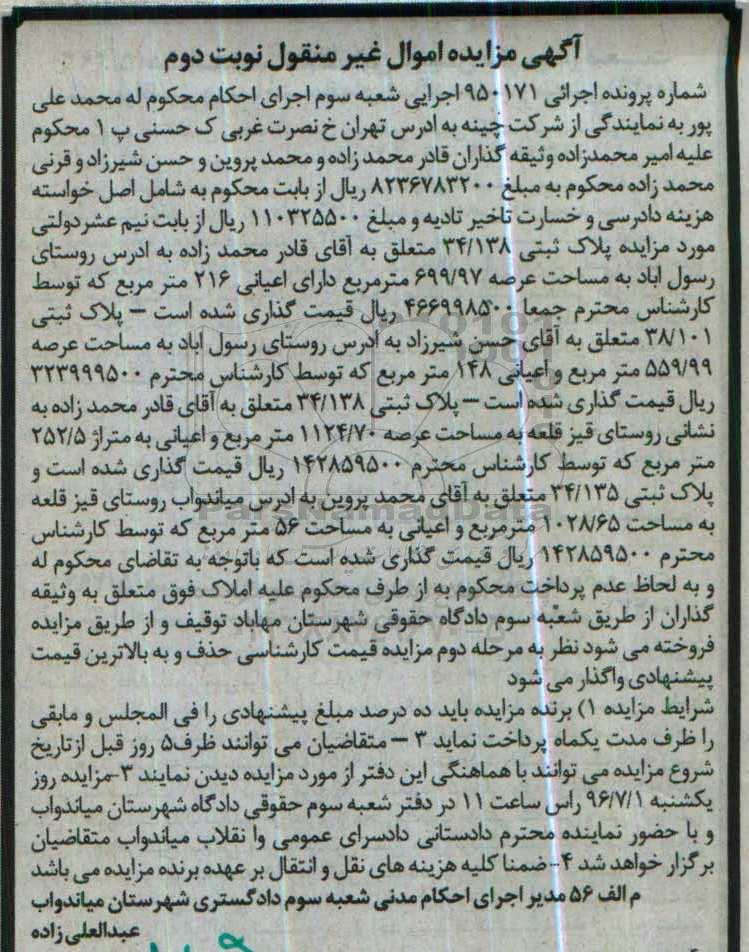 آگهی مزایده اموال غیر منقول نوبت دوم
شماره پرونده اجرائی ۹۵۰۱۷۱ اجرایی شعبه سوم اجرای احکام محکوم له محمد علی
پور به نمایندگی از شرکت چینه به ادرس تهران خ نصرت غربی ک حسنی پ ۱ محکوم
علیه امیر محمدزاده وثیقه گذاران قادر محمد زاده و محمد پروین و حسن شیرزاد و قرنی
محمد زاده محکوم به مبلغ ۸۲۳۶۷۸۳۲۰۰ ریال از بابت محکوم به شامل اصل خواسته
هزینه دادرسی و خسارت تاخیر تادیه و مبلغ ۱۱۰۳۲۵۵۰۰ ریال از بابت نیم عشر دولتی
مورد مزایده پلاک ثبتی ۳۴/۱۳۸ متعلق به آقای قادر محمد زاده به ادرس روستای
رسول اباد به مساحت عرصه ۶۹۹/۹۷ مترمربع دارای اعیانی ۲۱۶ متر مربع که توسط
کارشناس محترم جمعا ۴۶۶۹۹۸۵۰۰ ریال قیمت گذاری شده است – پلاک ثبتی
۳۸/۱۰۱ متعلق به آقای حسن شیرزاد به ادرس روستای رسول اباد به مساحت عرصه
۵۵۹/۹۹ متر مربع و اعیانی ۱۴۸ متر مربع که توسط کارشناس محترم ۳۲۳۹۹۹۵۰۰
ریال قیمت گذاری شده است – پلاک ثبتی ۳۴/۱۳۸ متعلق به آقای قادر محمد زاده به
نشانی روستای قیز قلعه به مساحت عرصه ۱۱۲۴/۷۰ متر مربع و اعیانی به متراژ ۲۵۲/۵
متر مربع که توسط کارشناس محترم ۱۴۲۸۵۹۵۰۰ ریال قیمت گذاری شده است و
پلاک ثبتی ۳۴/۱۳۵ متعلق به آقای محمد پروین به ادرس میاندواب روستای قیز قلعه
به مساحت ۱۰۲۸/۶۵ مترمربع و اعیانی به مساحت ۵۶ متر مربع که توسط کارشناس
محترم ۱۴۲۸۵۹۵۰۰ ریال قیمت گذاری شده است که باتوجه به تقاضای محکوم له
و به لحاظ عدم پرداخت محکوم به از طرف محکوم علیه املاک فوق متعلق به وثیقه
گذاران از طریق شعبه سوم دادگاه حقوقی شهرستان مهاباد توقیف و از طریق مزایده
فروخته می شود نظر به مرحله دوم مزایده قیمت کارشناسی حذف و به بالاترین قیمت
پیشنهادی واگذار می شود
شرایط مزایده ۱) برنده مزایده باید ده درصد مبلغ پیشنهادی را فی المجلس و مابقی
را ظرف مدت یکماه پرداخت نماید ۳ – متقاضیان می توانند ظرف۵ روز قبل ازتاریخ
شروع مزایده می توانند با هماهنگی این دفتر از مورد مزایده دیدن نمایند ۳-مزایده روز
یکشنبه ۹۶/۷/۱ راس ساعت ۱۱ در دفتر شعبه سوم حقوقی دادگاه شهرستان میاندواب
و با حضور نماینده محترم دادستانی دادسرای عمومی وا نقلاب میاندواب متقاضیان
برگزار خواهد شد ۴- ضمنا کلیه هزینه های نقل و انتقال بر عهده برنده مزایده می باشد
م الف ۵۶ مدیر اجرای احکام مدنی شعبه سوم دادگستری شهرستان میاندواب
عبدالعلی زاده
ParsNamadData